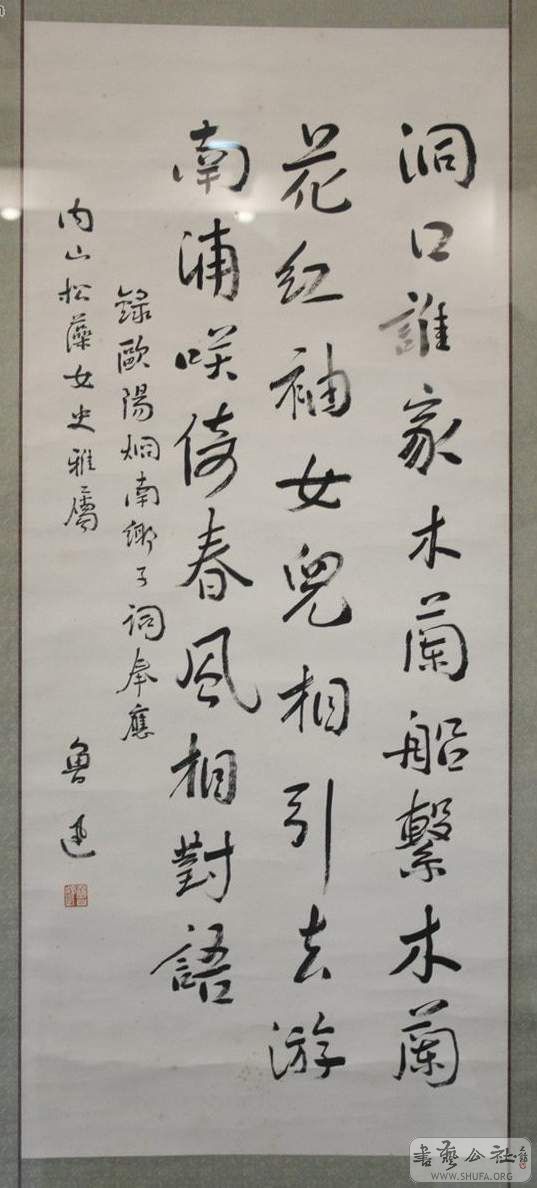 洞口誰家木蘭船繫木蘭
花紅袖女兒相引去游
南浦咲倚春風相對語
錄歐陽炯南鄉子詞奉應
内山松藻女史雅屬
魯迅
書藝公社
WWW.SHUFA.ORG